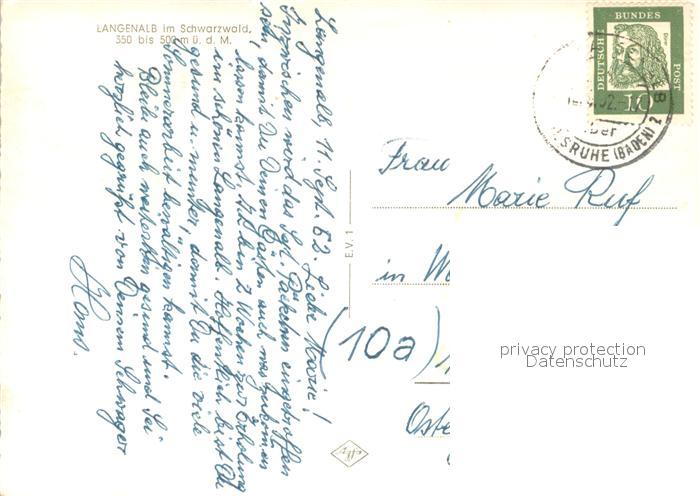 LANGENALB im Schwarzwald,
350 bis 500 m ü. d. M.
Langenalb, 11. Sept. 62. Liebe Marie!
Inzwischen wird das Päckchen eingetroffen
sein, damit Du Deinen Gästen auch was
kannst. Ich bin 2 Wochen zur Erholung
im schönen Langenalb. Hoffentlich bist Du
gesund u. munter, damit Du die viele
bewältigen kannst.
Bleibe auch weiterhin gesund und sei
herzlich gegrüßt von Deinem Schwager
Hans.
E.V. 1
DEUTSCHE
BUNDES
POST
10
KARLSRUHE (BADEN) 2
Frau
Marie Ruf
in
(10a)
privacy protection
Datenschutz